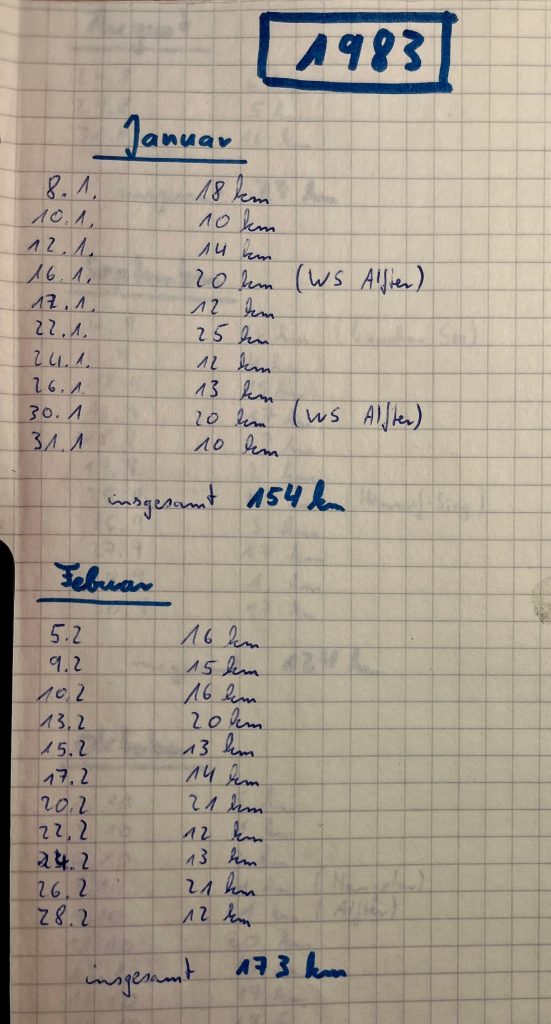 1983
Januar
8.1. 18 km
10.1. 10 km
12.1. 14 km
16.1. 20 km (WS Alfter)
17.1. 12 km
22.1. 25 km
24.1. 12 km
26.1. 13 km
30.1 20 km (WS Alfter)
31.1 10 km
insgesamt 154 km
Febuar
5.2 16 km
9.2 15 km
10.2 16 km
13.2 20 km
15.2 13 km
17.2 14 km
20.2 21 km
22.2 12 km
24.2 13 km
26.2 21 km
28.2 12 km
insgesamt 173 km